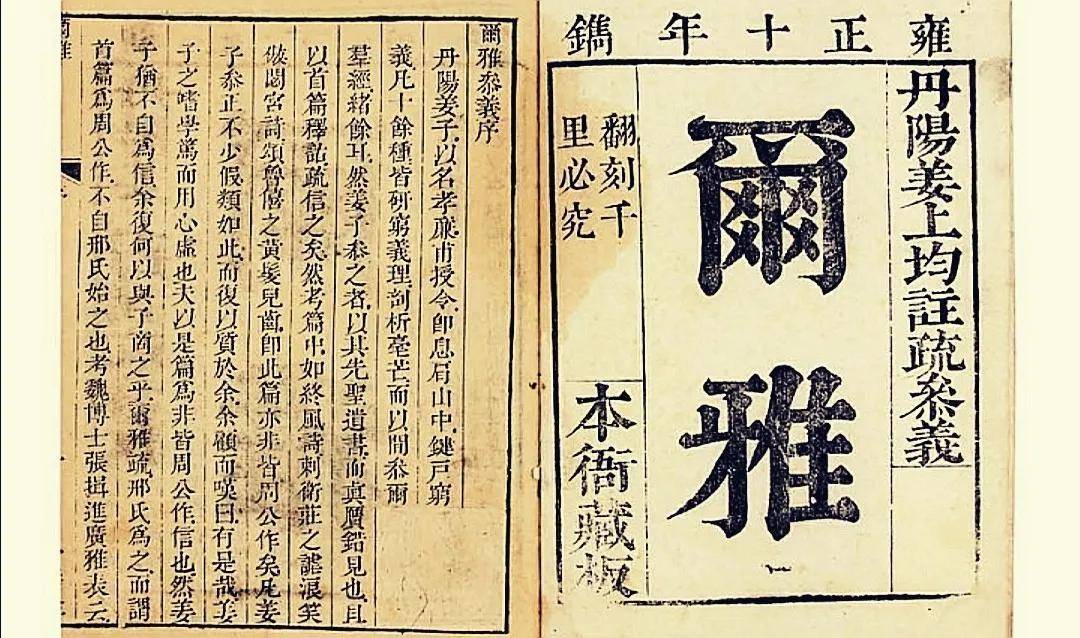 雍正十年鐫
丹陽姜上均註疏參義
爾雅
翻刻千
里必究
本衙藏板
爾雅叅義序
丹陽姜子以名孝廉甫授令即息肩山中鍵戸窮
義凡十餘種皆研窮義理剖析毫芒而以間叅爾
羣經緒餘耳然姜子叅之者以其先聖遺書而真贋錯見也且
以首篇釋詁疏信之矣然考篇中如終風詩刺衛莊之謔浪笑
傲閟宮詩頌魯僖之黃髮兒齒即此篇亦非皆周公作矣凡姜
子叅正不少假類如此而復以質於余余顧而嘆曰有是哉姜
子之嗜學篤而用心虛也夫以是篇爲非皆周公作信也然姜
子猶不自爲信余復何以與子商之乎爾雅疏邢氏爲之而謂
首篇爲周公作不自邢氏始之也考魏博士張揖進廣雅表云
爾雅